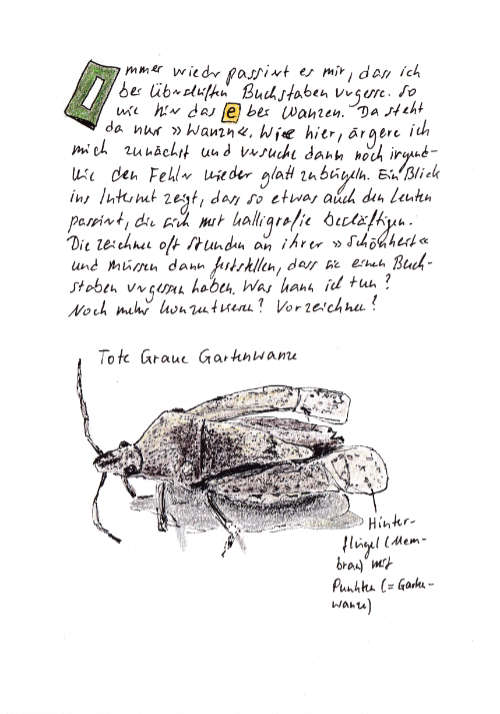 Immer wieder passiert es mir, dass ich
bei Überschriften Buchstaben vergesse. So
wie hier das e bei Wanzen. Da steht
da nur »Wanzn«. Wie hier, ärgere ich
mich zunächst und versuche dann noch irgend-
wie den Fehler wieder glatt zu bügeln. Ein Blick
ins Internet zeigt, dass so etwas auch den Leuten
passiert, die sich mit Kalligrafie beschäftigen.
Die zeichnen oft Stunden an ihrer »Schönheit«
und müssen dann feststellen, dass sie einen Buch-
staben vergessen haben. Was kann ich tun?
Noch mehr konzentrieren? Vorzeichnen?
Tote Graue Gartenwanze
Hinter-
flügel (Mem-
bran) mit
Punkten (= Garten-
wanze)